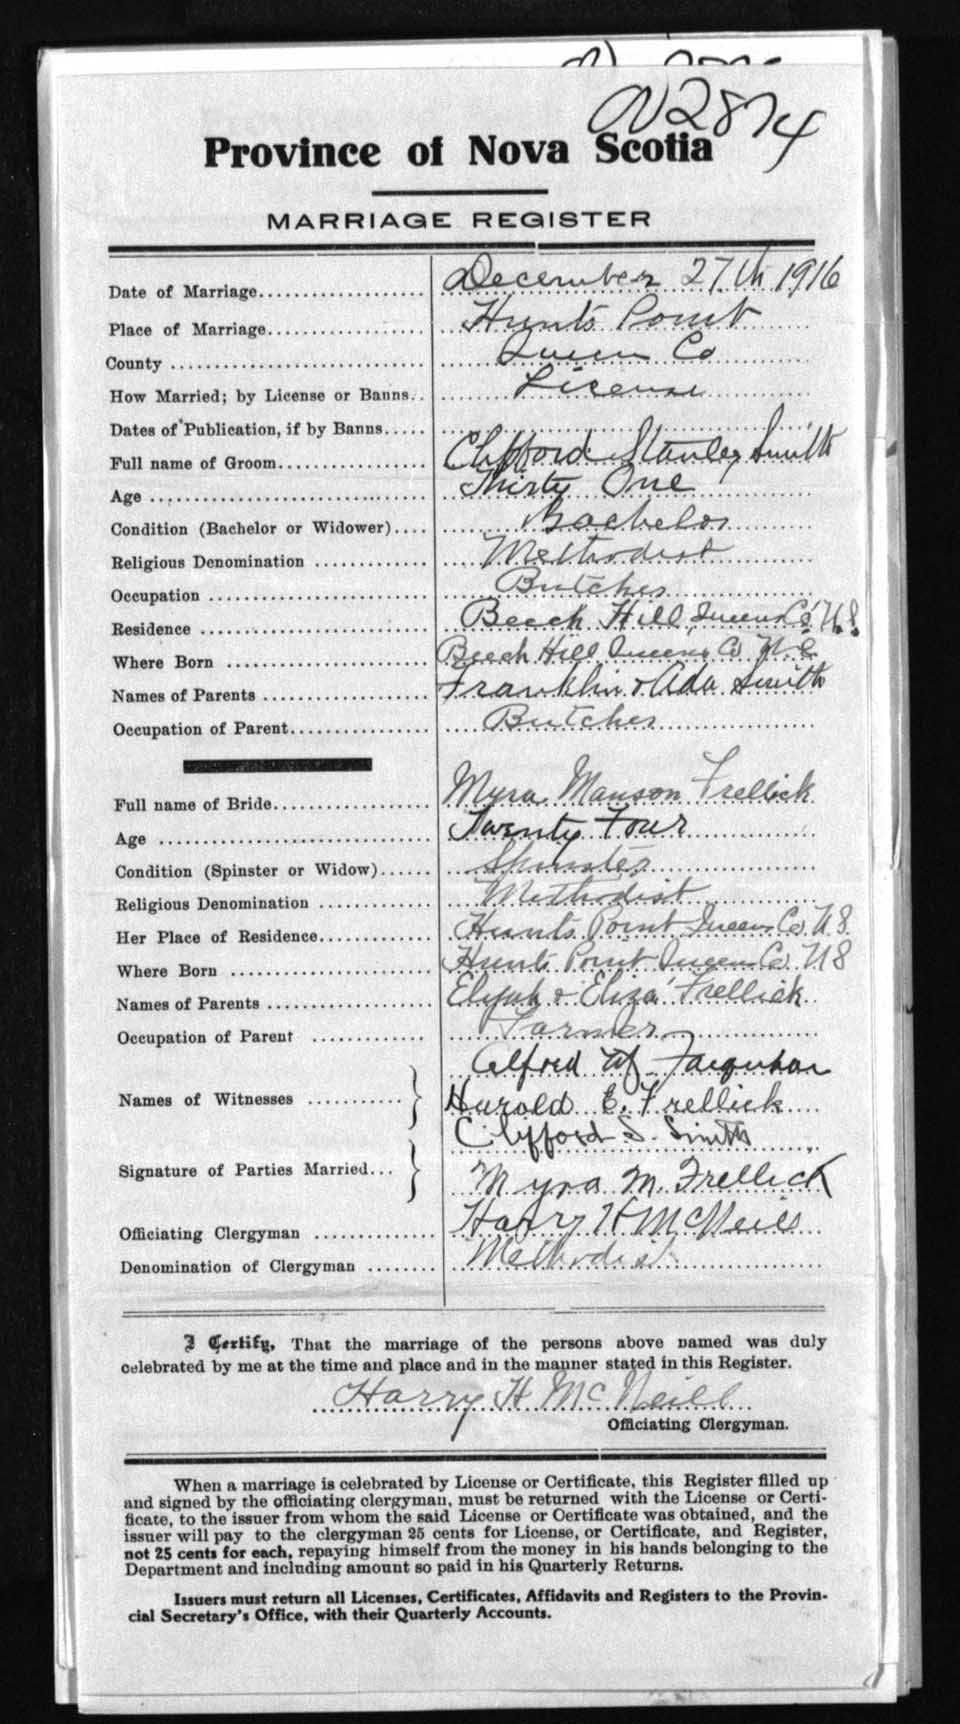 N2874
Province of Nova Scotia
MARRIAGE REGISTER
Date of Marriage.................... December 27th 1916
Place of Marriage................... Hunts Point
County .............................. Queens Co
How Married; by License or Banns.. License
Dates of Publication, if by Banns.....
Full name of Groom.................. Clifford Stanley Smith
Age ................................ Thirty One
Condition (Bachelor or Widower).... Bachelor
Religious Denomination ............. Methodist
Occupation ......................... Butcher
Residence .......................... Beech Hill Queens Co N.S.
Where Born ........................ Beech Hill Queens Co N.S.
Names of Parents ................... Franklin & Ada Smith
Occupation of Parent................ Butcher
Full name of Bride.................. Myra Manson Frellick
Age ................................ Twenty Four
Condition (Spinster or Widow)...... Spinster
Religious Denomination ............. Methodist
Her Place of Residence............. Hunts Point Queens Co. N.S.
Where Born ........................ Hunts Point Queens Co. N S
Names of Parents ................... Elijah & Eliza Frellick
Occupation of Parent ............. Farmer
Alfred Farquhar
Names of Witnesses ........... Harold E. Frellick
Clifford S. Smith
Signature of Parties Married...
Myra M. Frellick
Officiating Clergyman .............. Harry H McNeill
Denomination of Clergyman ........ Methodist
I Certify, That the marriage of the persons above named was duly
celebrated by me at the time and place and in the manner stated in this Register.
Harry H McNeill
Officiating Clergyman.
When a marriage is celebrated by License or Certificate, this Register filled up
and signed by the officiating clergyman, must be returned with the License or Certi-
ficate, to the issuer from whom the said License or Certificate was obtained, and the
issuer will pay to the clergyman 25 cents for License, or Certificate, and Register,
not 25 cents for each, repaying himself from the money in his hands belonging to the
Department and including amount so paid in his Quarterly Returns.
Issuers must return all Licenses, Certificates, Affidavits and Registers to the Provin-
cial Secretary's Office, with their Quarterly Accounts.